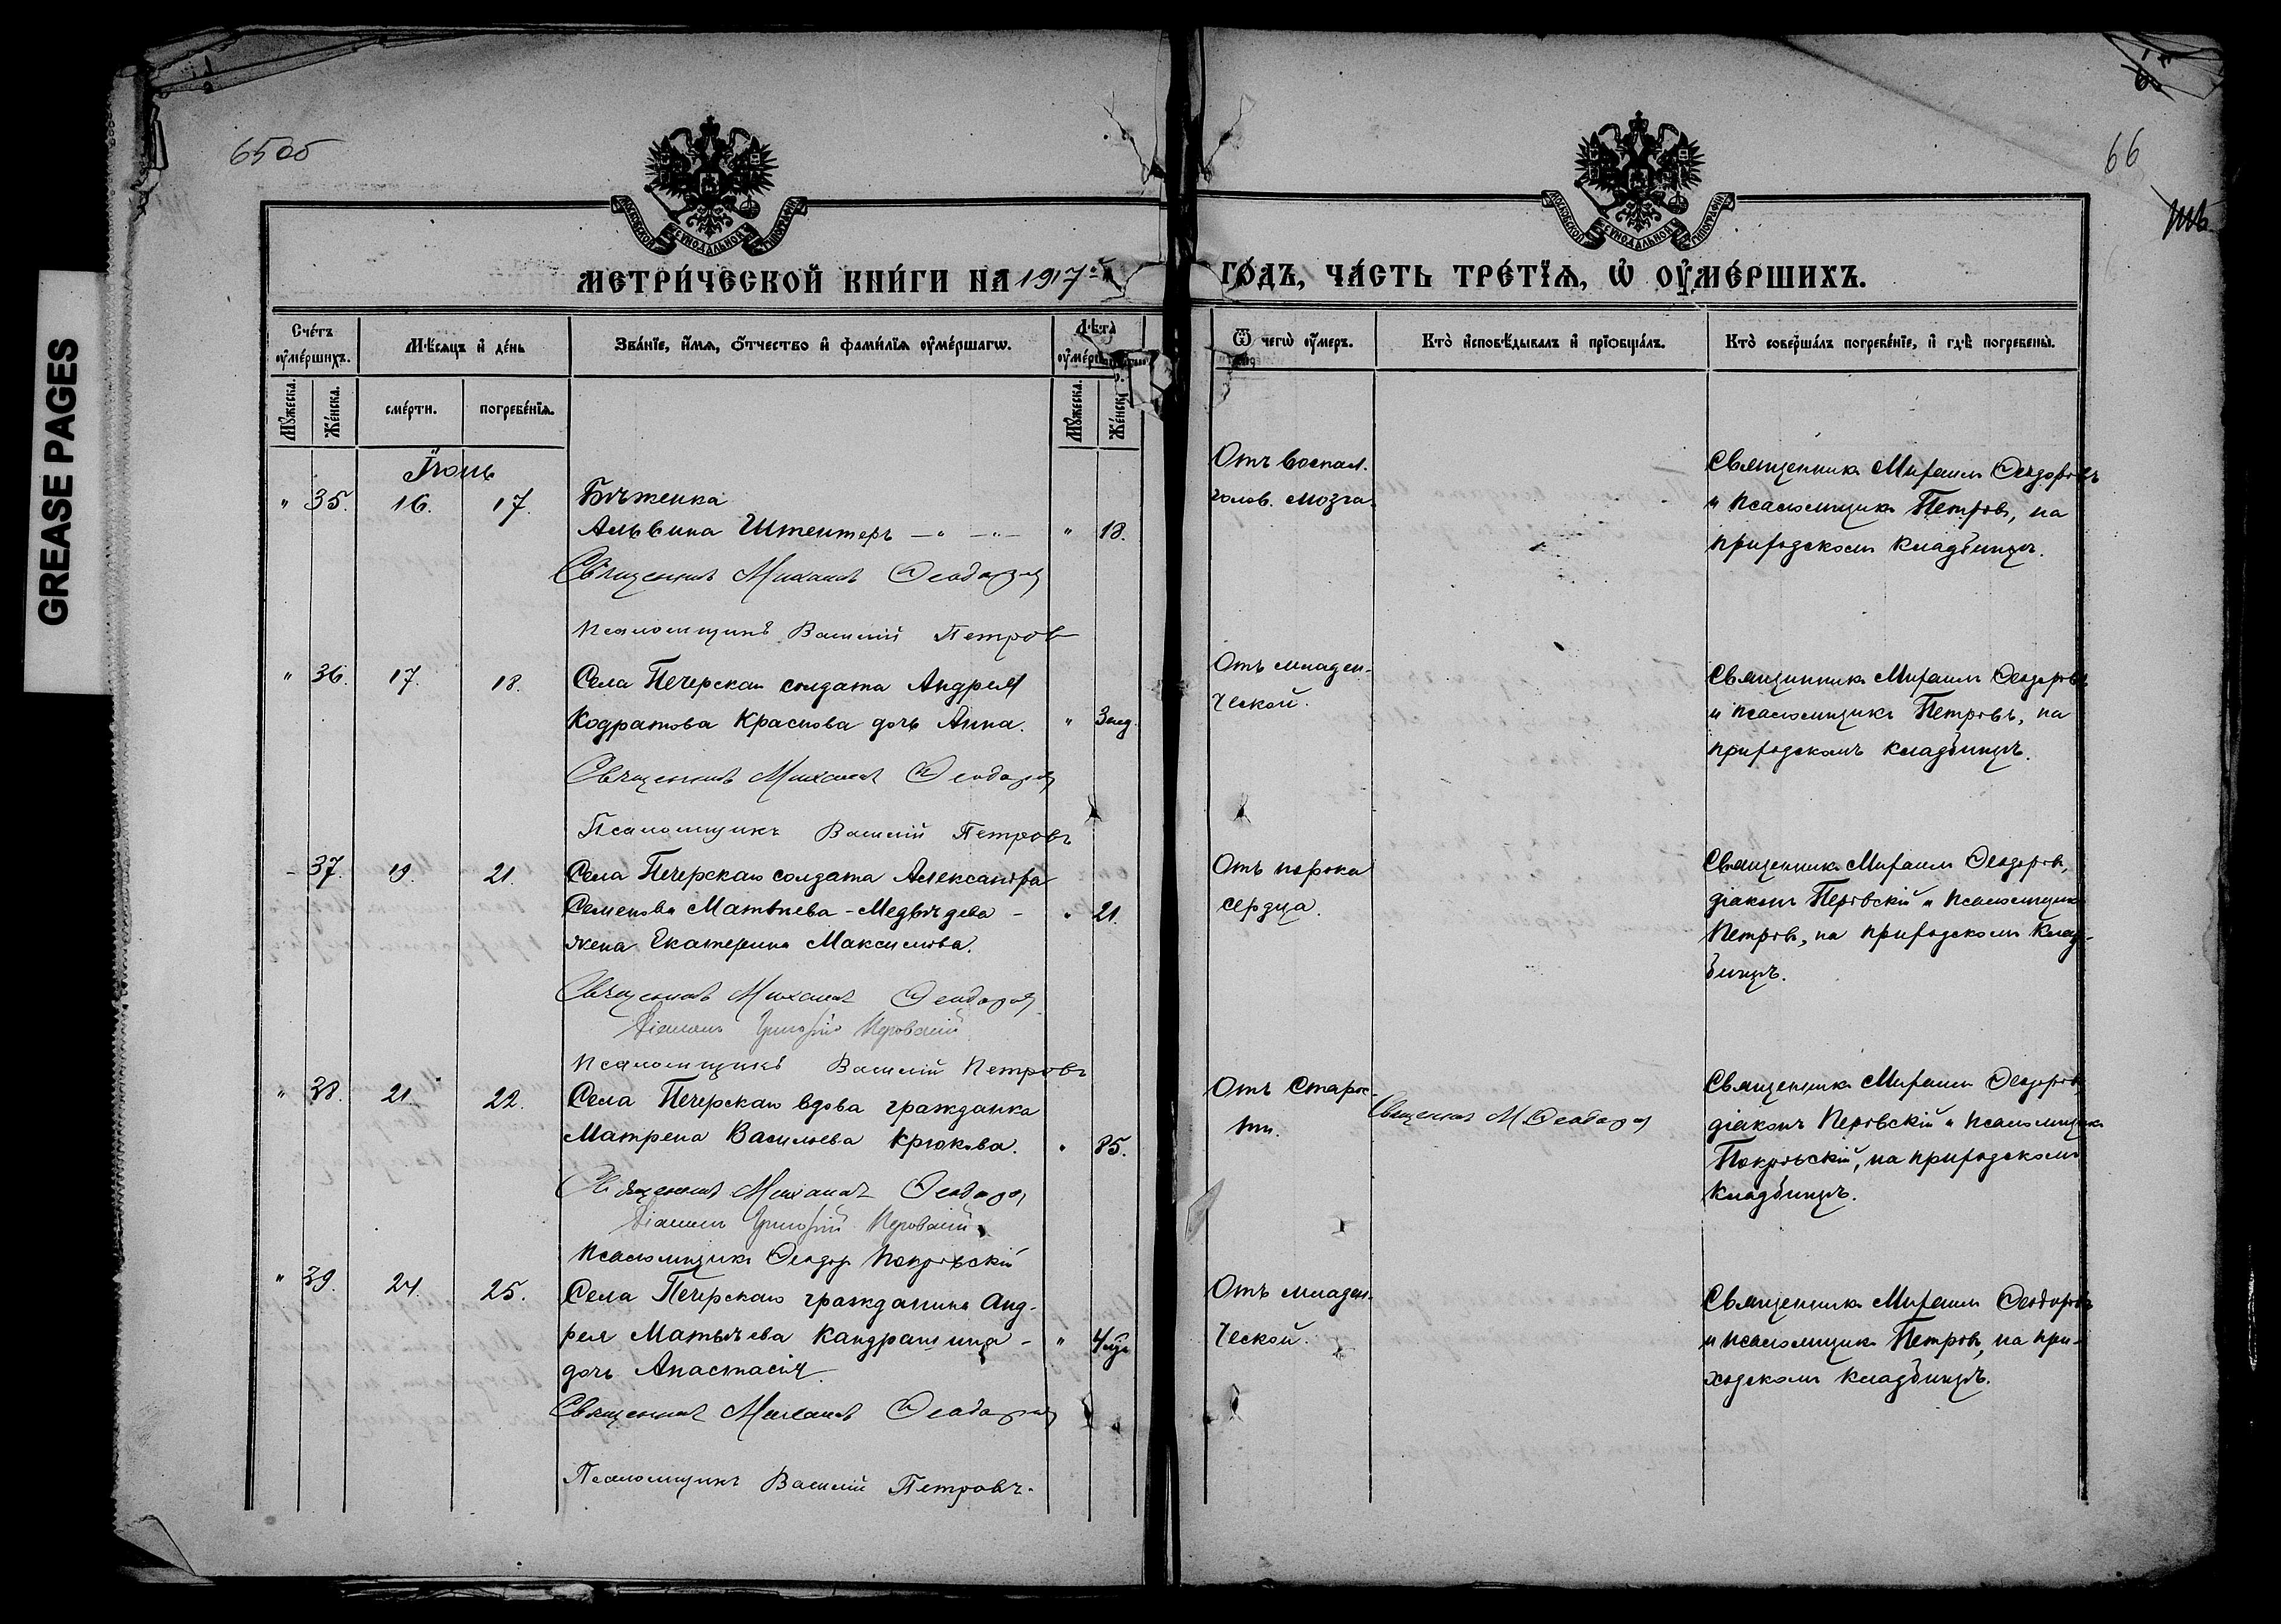 GREASE PAGES
65об
66
МОСКОВСКОЙ СѴНОДАЛЬНОЙ ТИПОГРАФІИ
МОСКОВСКОЙ СѴНОДАЛЬНОЙ ТИПОГРАФІИ
МЕТРИ́ЧЕСКОЙ КНИ́ГИ НА 1917й
ГО́ДЪ, ЧА́СТЬ ТРЕ́ТЇѦ, Ѡ҆ ОУ҆МЕ́РШИХЪ.
Сче́тъ оу҆ме́ршихъ.
Мѣ́сѧцъ и҆ де́нь
Зва́нїе, и҆́мѧ, ѻ҆́тчество и҆ фами́лїѧ оу҆ме́ршагѡ.
Лѣ́та
Ѿ чегѡ̀ оу҆́меръ.
Кто̀ и҆сповѣ́дывалъ и҆ прїѡбща́лъ.
Кто̀ соверша́лъ погребе́нїе, и҆ гдѣ̀ погребены̀.
Мꙋ́жеска.
Же́нска.
сме́рти.
погребе́нїѧ.
Мꙋ́жеска.
Же́нска
Іюнь
" 35. 16. 17. Бѣженка
Альвина Штентеръ — " — " — " 18.
Священникъ Михаилъ Ѳеодоровъ
Псаломщикъ Василій Петровъ
Отъ воспал.
голов. мозга.
Священникъ Михаилъ Ѳеодоровъ
и псаломщикъ Петровъ, на
приходскомъ кладбищѣ.
" 36. 17. 18. Села Печерскаго солдата Андрея
Кодратова Краснова дочь Анна. " 3 нед.
Священникъ Михаилъ Ѳеодоровъ
Псаломщикъ Василій Петровъ
Отъ младен-
ческой.
Священникъ Михаилъ Ѳеодоровъ
и псаломщикъ Петровъ, на
приходскомъ кладбищѣ.
- 37. 19. 21. Села Печерскаго солдата Александра
Семенова Матвѣева-Медвѣдева - " 21.
жена Екатерина Максимова.
Священникъ Михаилъ Ѳеодоровъ
Діаконъ Григорій Перовскій
Псаломщикъ Василій Петровъ
Отъ порока
сердца.
Священникъ Михаилъ Ѳеодоровъ,
діаконъ Перовскій и псаломщикъ
Петровъ, на приходскомъ клад-
бищѣ.
" 38. 21. 22. Села Печерскаго вдова гражданка
Матрена Васильева Крюкова. " 85.
Священникъ Михаилъ Ѳеодоровъ
Діаконъ Григорій Перовскій
Псаломщикъ Ѳеодоръ Покровскій
Отъ старос-
ти.
Священникъ М Ѳеодоровъ
Священникъ Михаилъ Ѳеодоровъ,
діаконъ Перовскій и псаломщикъ
Покровскій, на приходскомъ
кладбищѣ.
" 39. 24. 25. Села Печерскаго гражданина Анд-
рея Матвѣева Кандрашина - "
дочь Анастасія.
Священникъ Михаилъ Ѳеодоровъ
Псаломщикъ Василій Петровъ.
Отъ младен-
ческой.
Священникъ Михаилъ Ѳеодоровъ
и псаломщикъ Петровъ, на при-
ходскомъ кладбищѣ.